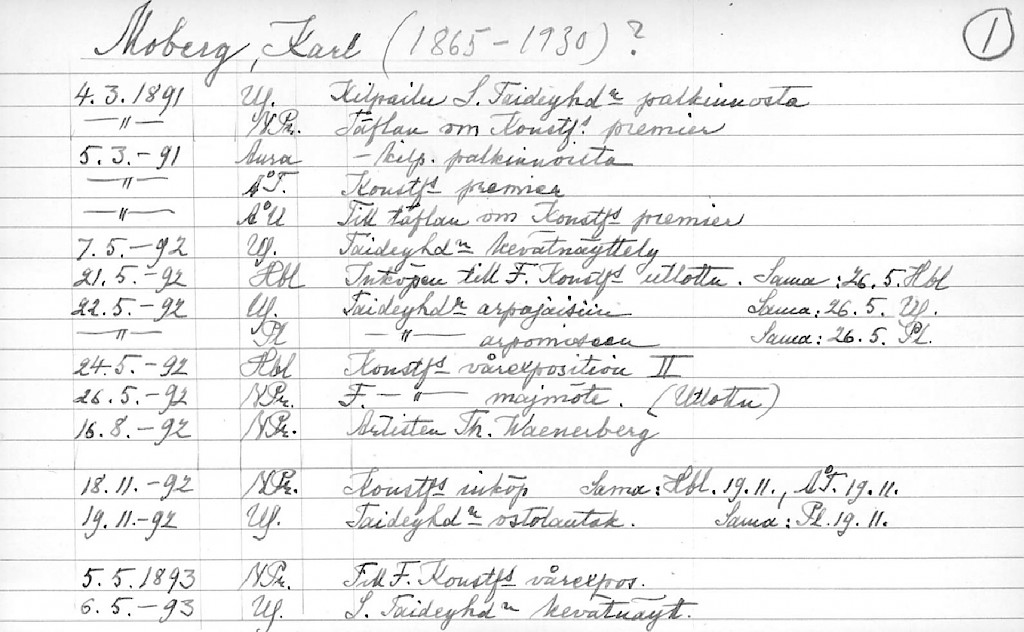 Moberg, Karl (1865-1930)? 1
4.3.1891 Uf. Kilpailu S. Taideyhdn palkinnosta
—"— N.Pr. Täflan om Konstfs premier
5.3.-91 Aura -kilp. palkinnoista
—"— Å.T. Konstfs premier
—"— ÅU Till täflan om Konstfs premier
7.5.-92 Uf. Taideyhdn kevätnäyttely
21.5.-92 Hbl Inköpen till F. Konstfs utlottn. Sama: 26.5. Hbl
22.5.-92 Uf. Taideyhdn arpajaisiin Sama: 26.5. Uf.
—"— Pl —"— arpomiseen Sama: 26.5. Pl.
24.5.-92 Hbl Konstfs vårexposition II
26.5.-92 N.Pr. F. —"— majmöte. (Utlottn)
16.8.-92 N.Pr. Artisten Th. Waenerberg
18.11.-92 N.Pr. Konstfs inköp Sama: Hbl. 19.11., Å.T. 19.11.
19.11.-92 Uf. Taideyhdn ostolautak. Sama: Pl. 19.11.
5.5.1893 N.Pr. Till F. Konstfs vårexpos.
6.5.-93 Uf. S. Taideyhdn kevätnäyt.